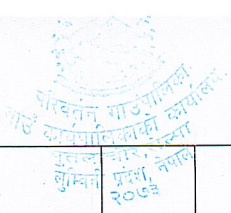 परिवर्तन गाउँपालिका
गाउँ कार्यपालिकाको कार्यालय
लुम्बिनी प्रदेश, नेपाल
२०७३